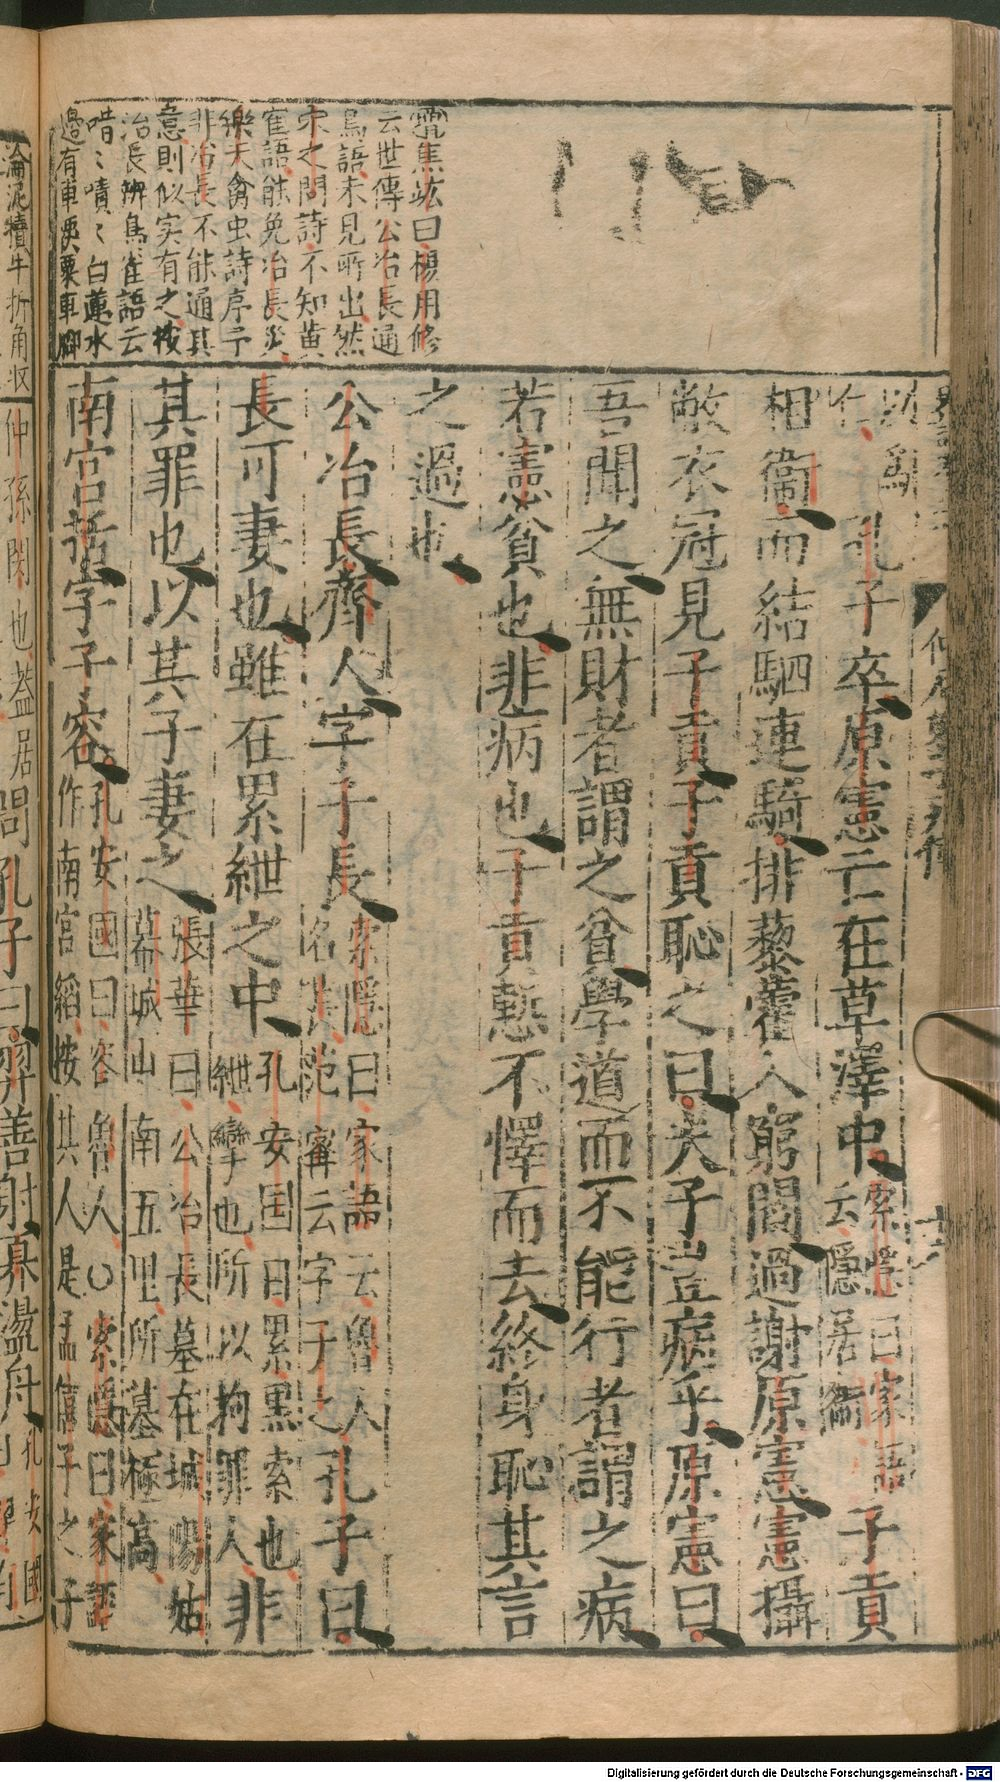 雲焦竑曰楊用修
云世傳公冶長通
鳥語未見所出然
宋之問詩不知黃
雀語能免冶長災
樂天禽虫詩序予
非冶長不能通其
意則似实有之按
治長辨鳥雀語云
唶〻嘖〻白蓮水
邊有車㳪粟車脚
淪泥犢牛折角收
以為
仁 孔子卒原憲亡在草澤中 索隱曰家語
云隱居衞 子貢
相衞而結駟連騎排藜藿入窮閻過謝原憲憲攝
敝衣冠見子貢子貢恥之曰夫子豈病乎原憲曰
吾聞之無財者謂之貧學道而不能行者謂之病
若憲貧也非病也子貢慙不懌而去終身恥其言
之過也
公冶長齊人字子長 索隱曰家語云魯人
名萇范甯云字子之 孔子曰
長可妻也雖在累紲之中 孔安国曰累黑索也
紲攣也所以拘罪人 非
其罪也以其子妻之 張華曰公冶長墓在城陽姑
幕城山南五里所墓極高
南宮括字子容 孔安國曰容魯人〇索隱曰家語
作南宮縚按其人是孟僖子之子
仲孫閱也蓋居 問孔子曰羿善射奡盪舟 孔安國
Digitalisierung gefördert durch die Deutsche Forschungsgemeinschaft - DFG